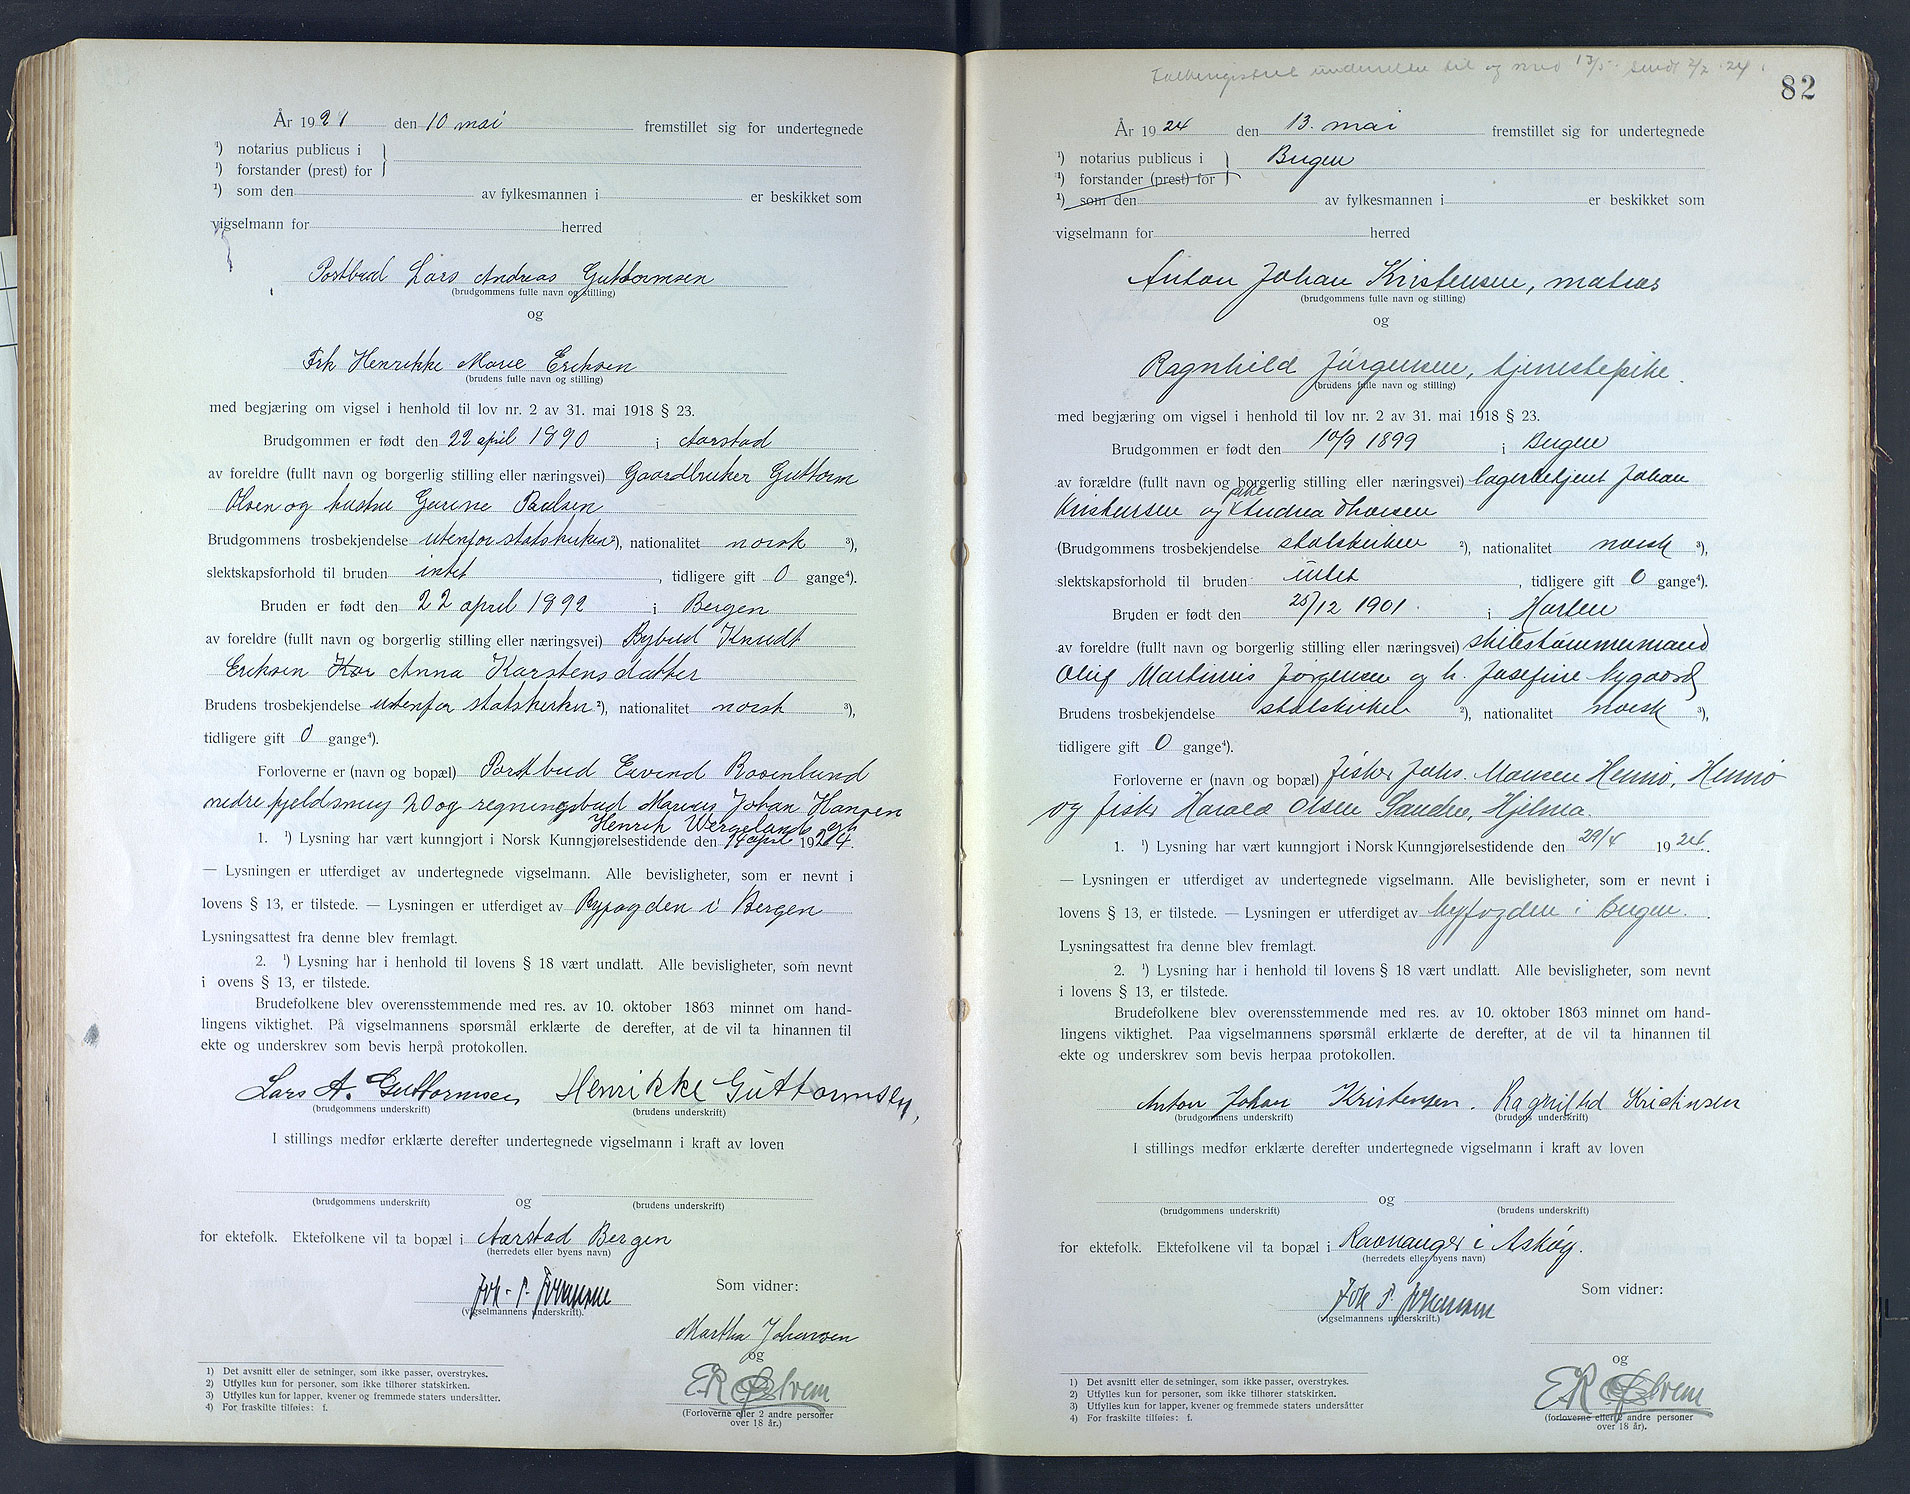 År 1921 den 10 mai fremstillet sig for undertegnede
¹) notarius publicus i
¹) forstander (prest) for
¹) som den av fylkesmannen i er beskikket som
vigselmann for herred
Postbud Lars Andreas Guttormsen
(brudgommens fulle navn og stilling)
og
Frk Henrikke Marie Eriksen
(brudens fulle navn og stilling)
med begjæring om vigsel i henhold til lov nr. 2 av 31. mai 1918 § 23.
Brudgommen er født den 22 april 1890 i Aarstad
av foreldre (fullt navn og borgerlig stilling eller næringsvei) Gaardbruker Guttorm
Olsen og hustru Gurine Paulsen
Brudgommens trosbekjendelse utenfor statskirken ²), nationalitet norsk ³),
slektskapsforhold til bruden intet, tidligere gift 0 gange⁴).
Bruden er født den 22 april 1892 i Bergen
av foreldre (fullt navn og borgerlig stilling eller næringsvei) Bybud Knudt
Eriksen Kar Anna Karstensdatter
Brudens trosbekjendelse utenfor statskirken ²), nationalitet norsk ³),
tidligere gift 0 gange⁴).
Forloverne er (navn og bopæl) Postbud Eivind Rosenlund
nedre fjeldsmug 20 og regningsbud Marius Johan Hansen
Henrik Wergelands gt
1. ¹) Lysning har vært kunngjort i Norsk Kunngjørelsestidende den 14 april 1924.
— Lysningen er utferdiget av undertegnede vigselmann. Alle bevisligheter, som er nevnt i
lovens § 13, er tilstede. — Lysningen er utferdiget av Byfogden i Bergen
Lysningsattest fra denne blev fremlagt.
2. ¹) Lysning har i henhold til lovens § 18 vært undlatt. Alle bevisligheter, som nevnt
i ovens § 13, er tilstede.
Brudefolkene blev overensstemmende med res. av 10. oktober 1863 minnet om hand-
lingens viktighet. På vigselmannens spørsmål erklærte de derefter, at de vil ta hinannen til
ekte og underskrev som bevis herpå protokollen.
Lars A. Guttormsen Henrikke Guttormsen,
(brudgommens underskrift) (brudens underskrift)
I stillings medfør erklærte derefter undertegnede vigselmann i kraft av loven
og
(brudgommens underskrift) (brudens underskrift)
for ektefolk. Ektefolkene vil ta bopæl i Aarstad Bergen
(herredets eller byens navn)
Joh. P. Johansen Som vidner:
(vigselmannens underskrift).
Martha Johansen
og
(Forloverne eller 2 andre personer
over 18 år.)
1) Det avsnitt eller de setninger, som ikke passer, overstrykes.
2) Utfylles kun for personer, som ikke tilhører statskirken.
3) Utfylles kun for lapper, kvener og fremmede staters undersåtter.
4) For fraskilte tilføies: f.
til og med 13/5 sendt 2/7 24.
82
År 1924 den 13. mai fremstillet sig for undertegnede
¹) notarius publicus i Bergen
¹) forstander (prest) for
¹) som den av fylkesmannen i er beskikket som
vigselmann for herred
Anton Johan Kristensen, matros
(brudgommens fulle navn og stilling)
og
Ragnhild Jørgensen, tjenestepike.
(brudens fulle navn og stilling)
med begjæring om vigsel i henhold til lov nr. 2 av 31. mai 1918 § 23.
Brudgommen er født den 10/9 1899 i Bergen
av forældre (fullt navn og borgerlig stilling eller næringsvei) lagerbetjent Johan
Kristensen og pike Andrea Thorsen
(Brudgommens trosbekjendelse statskirken ²), nationalitet norsk ³),
slektskapsforhold til bruden intet, tidligere gift 0 gange⁴).
Bruden er født den 25/12 1901. i Horten
av foreldre (fullt navn og borgerlig stilling eller næringsvei) skibstømmermand
Oluf Martinius Jørgensen og h. Josefine Nygaard
Brudens trosbekjendelse statskirken ²), nationalitet norsk ³),
tidligere gift 0 gange⁴).
Forloverne er (navn og bopæl) fisker Johs. Monsen Hennø, Hennø
og fisker Harald Olsen Sandøe, Hjelma.
1. ¹) Lysning har vært kunngjort i Norsk Kunngjørelsestidende den 29/4 1924.
— Lysningen er utferdiget av undertegnede vigselmann. Alle bevisligheter, som er nevnt i
lovens § 13, er tilstede. — Lysningen er utferdiget av byfogden i Bergen.
Lysningsattest fra denne blev fremlagt.
2. ¹) Lysning har i henhold til lovens § 18 vært undlatt. Alle bevisligheter, som nevnt
i lovens § 13, er tilstede.
Brudefolkene blev overensstemmende med res. av 10. oktober 1863 minnet om hand-
lingens viktighet. Paa vigselmannens spørsmål erklærte de derefter, at de vil ta hinannen til
ekte og underskrev som bevis herpaa protokollen.
Anton Johan Kristensen. Ragnhild Kristensen
(brudgommens underskrift) (brudens underskrift)
I stillings medfør erklærte derefter undertegnede vigselmann i kraft av loven
og
(brudgommens underskrift) (brudens underskrift)
for ektefolk. Ektefolkene vil ta bopæl i Ravnanger i Askøy.
(herredets eller byens navn)
Joh P. Johansen Som vidner:
(vigselmannens underskrift.)
og
(forloverne eller 2 andre personer
over 18 år).
1) Det avsnitt eller de setninger, som ikke passer, overstrykes.
2) Utfylles kun for personer, som ikke tilhører statskirken.
3) Utfylles kun for lapper, kvener og fremmede staters undersåtter
4) For fraskilte tilføies: f.